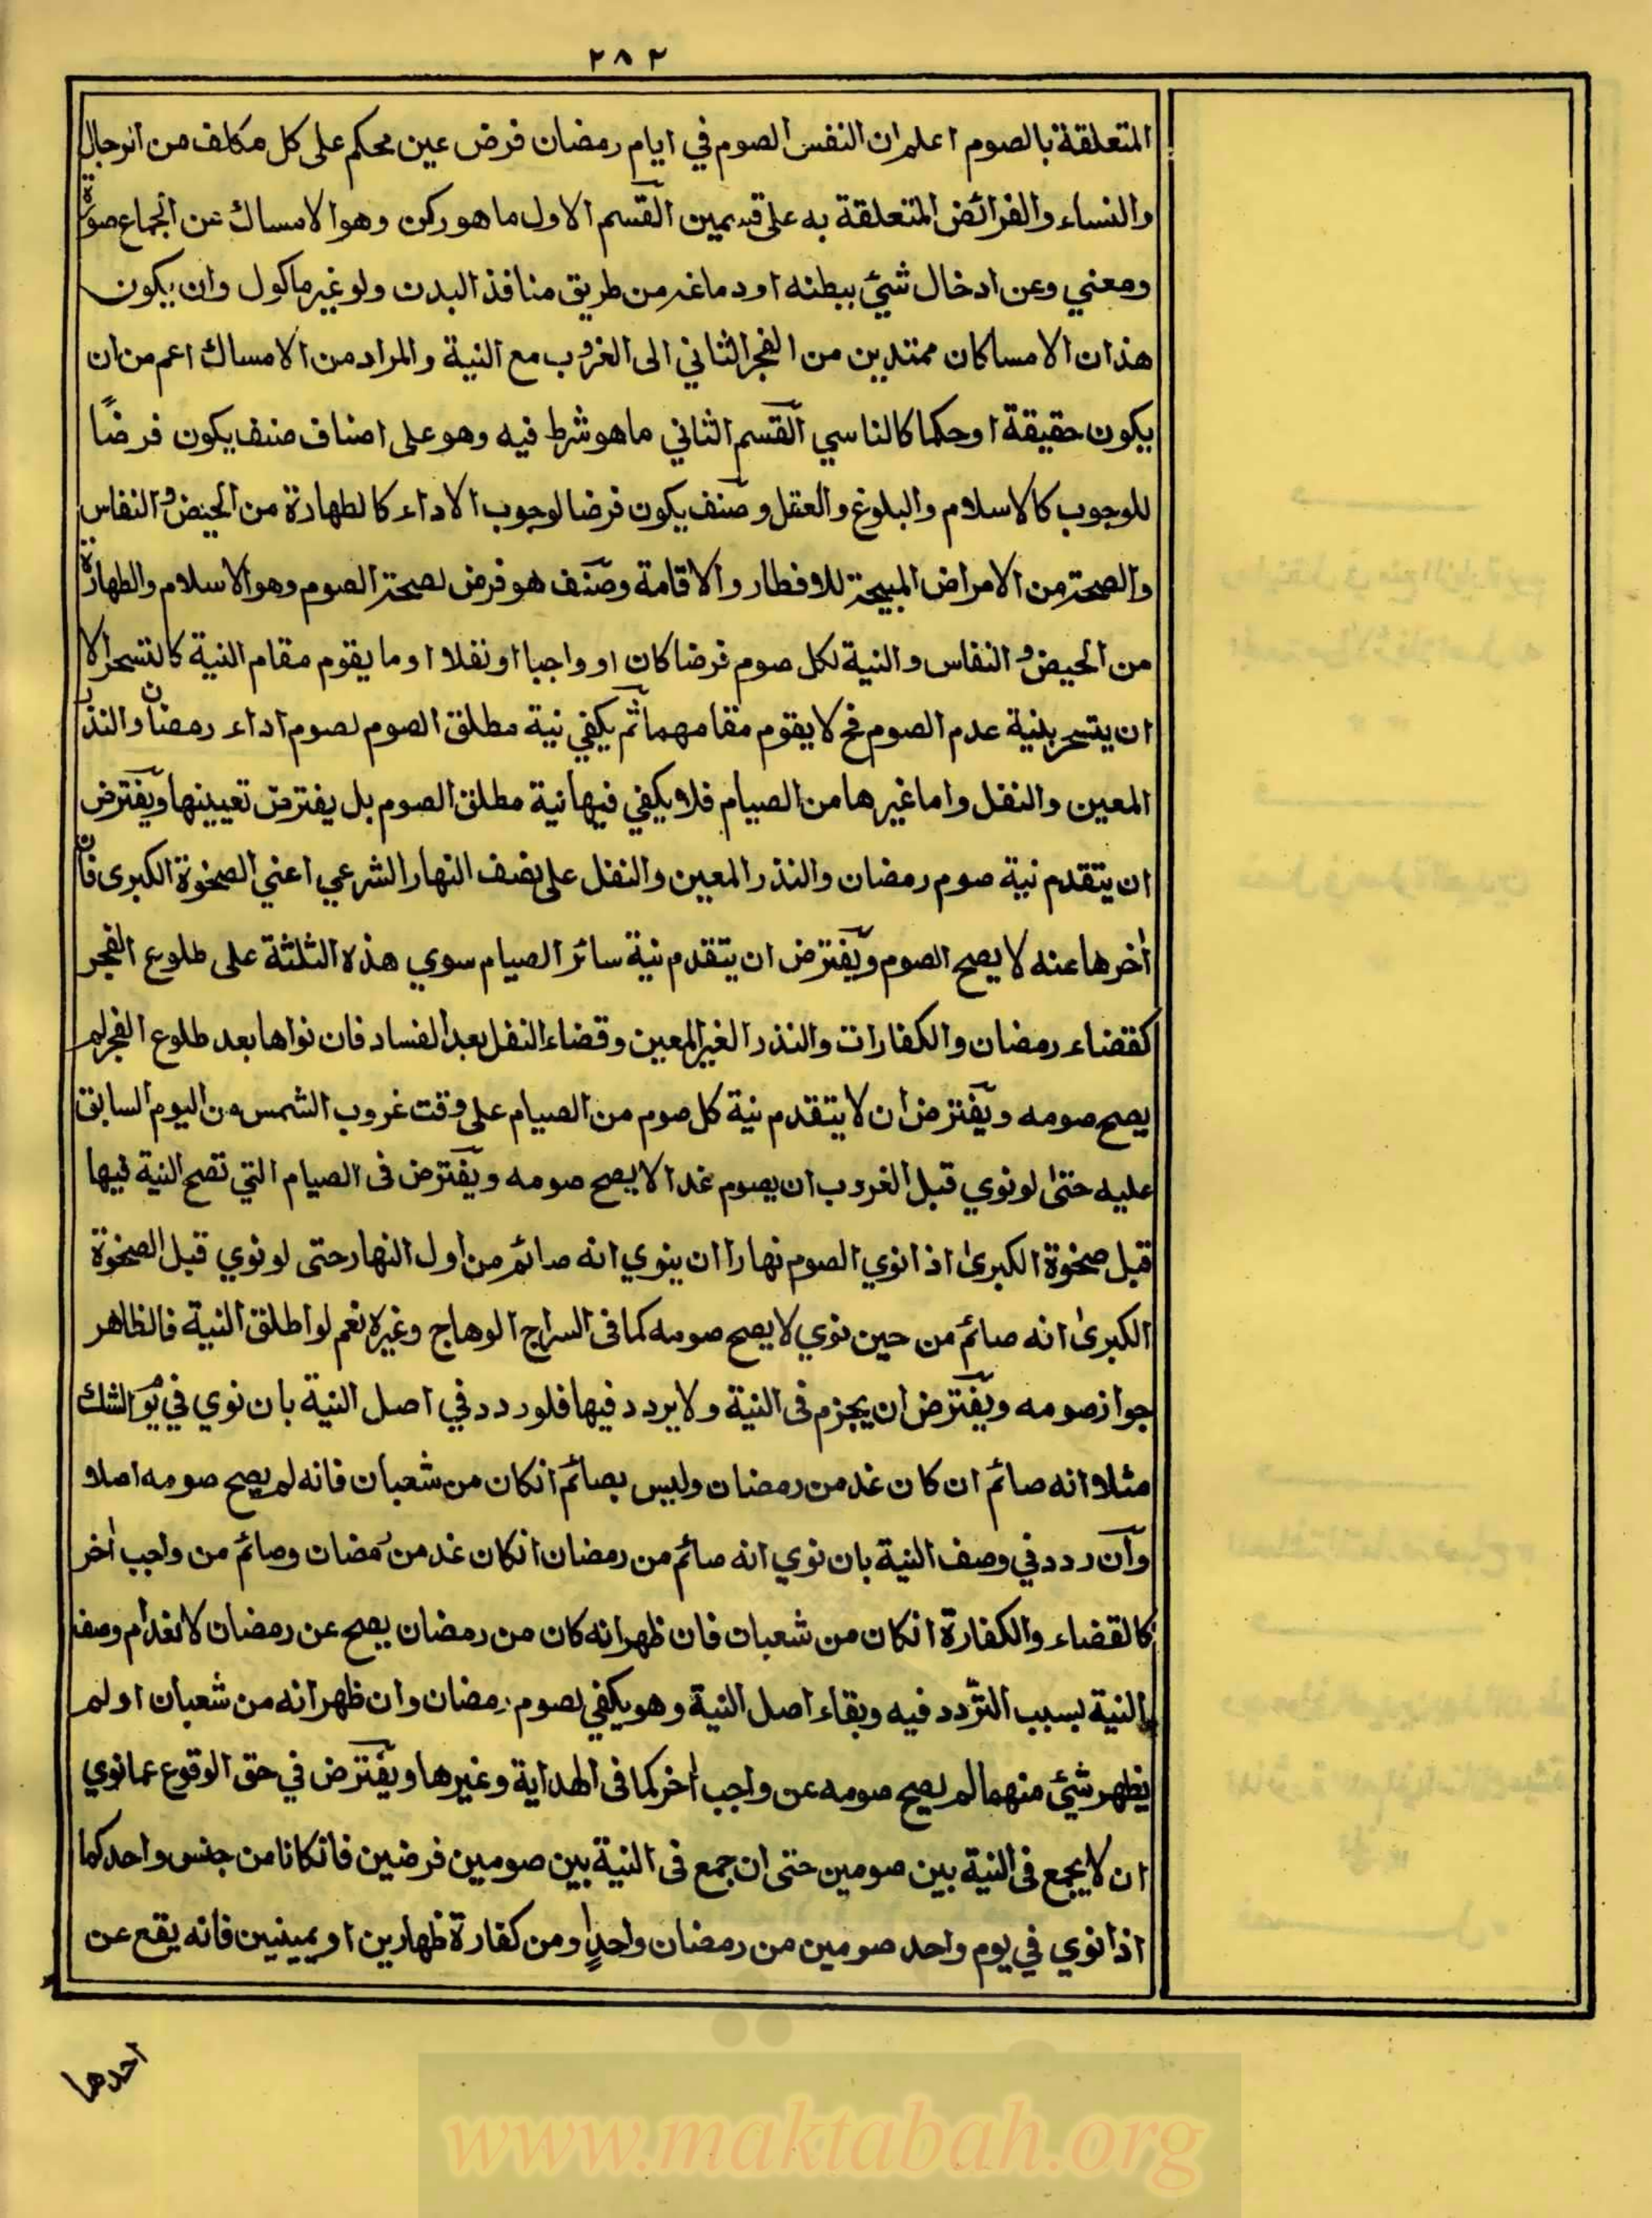 ٢٨٢
المتعلقة بالصوم اعلم ان النفس الصوم في ايام رمضان فرض عين محكم على كل مكلف من الرجال
والنساء والفرائض المتعلقة به على قسمين القسم الاول ما هو ركن وهو الامساك عن الجماع صورة
ومعني وعن ادخال شئ ببطنه او دماغه من طريق منافذ البدن ولو غير ماكول وان يكون
هذان الامساكان ممتدين من الفجر الثاني الى الغروب مع النية والمراد من الامساك اعم من ان
يكون حقيقة او حكما كالناسي القسم الثاني ما هو شرط فيه وهو على اصناف صنف يكون فرضًا
للوجوب كالاسلام والبلوغ والعقل وصنف يكون فرضا لوجوب الاداء كالطهارة من الحيض والنفاس
والصحة من الامراض المبيحة للافطار والاقامة وصنف هو فرض لصحة الصوم وهو الاسلام والطهارة
من الحيض والنفاس والنية لكل صوم فرضا كان او واجبا او نفلا او ما يقوم مقام النية كالتسحر الا
ان يتسحر بنية عدم الصوم فح لا يقوم مقامهما ثم يكفي نية مطلق الصوم لصوم اداء رمضان والنذر
المعين والنفل واما غيرها من الصيام فلا يكفي فيها نية مطلق الصوم بل يفترض تعيينها ويفترض
ان يتقدم نية صوم رمضان والنذر المعين والنفل على نصف النهار الشرعي اعني الضحوة الكبرى فان
أخرها عنه لا يصح الصوم ويفترض ان يتقدم نية سائر الصيام سوي هذه الثلثة على طلوع الفجر
كقضاء رمضان والكفارات والنذر الغير المعين وقضاء النفل بعد الفساد فان نواها بعد طلوع الفجر لم
يصح صومه ويفترض ان لا يتقدم نية كل صوم من الصيام على وقت غروب الشمس من اليوم السابق
عليه حتى لو نوي قبل الغروب ان يصوم غدا لا يصح صومه ويفترض فى الصيام التي تصح النية فيها
قبل ضحوة الكبرى اذا نوي الصوم نهارا ان ينوي انه صائم من اول النهار حتى لو نوي قبل الضحوة
الكبرى انه صائم من حين نوي لا يصح صومه كما فى السراج الوهاج وغيره نعم لو اطلق النية فالظاهر
جواز صومه ويفترض ان يجزم فى النية ولا يردد فيها فلو ردد في اصل النية بان نوي في يوم الشك
مثلا انه صائم ان كان غد من رمضان وليس بصائم انكان من شعبان فانه لم يصح صومه اصلا
وان ردد في وصف النية بان نوي انه صائم من رمضان انكان غد من رمضان وصائم من واجب أخر
كالقضاء والكفارة انكان من شعبان فان ظهر انه كان من رمضان يصح عن رمضان لانعدام وصف
النية بسبب التردد فيه وبقاء اصل النية وهو يكفي لصوم رمضان وان ظهر انه من شعبان او لم
يظهر شئ منهما لم يصح صومه عن واجب أخر كما فى الهداية وغيرها ويفترض في حق الوقوع عما نوي
ان لا يجمع فى النية بين صومين حتى ان جمع فى النية بين صومين فرضين فانكانا من جنس واحد كما
اذا نوي في يوم واحد صومين من رمضان واحدٍ او من كفارة ظهارين او يمينين فانه يقع عن
احدهما
www.maktabah.org